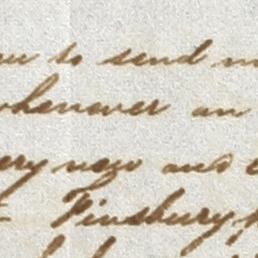 to send
whenever an
ery now and
Finsbury,